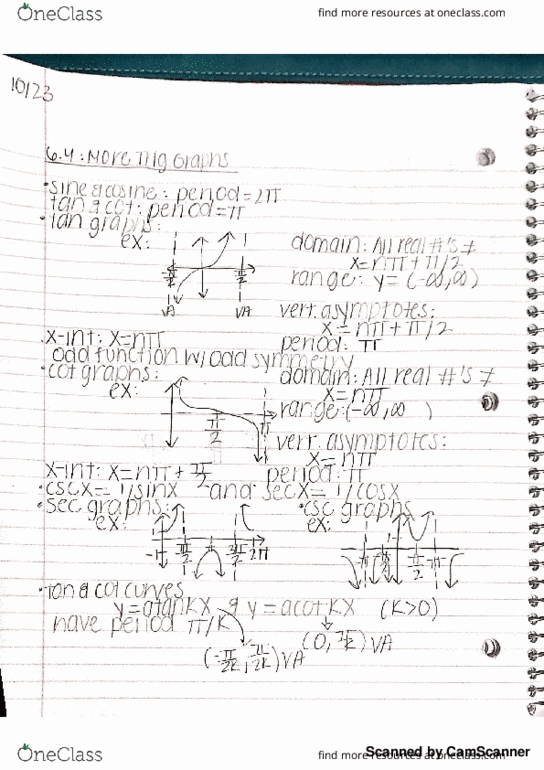 OneClass
find more resources at oneclass.com
10/23
6.4: More Trig Graphs
•sine & cosine: period=2π
tan & cot: period=π
•tan graphs:
ex:
domain: All real #'s ≠
x=nπ+π/2
range: y=(-∞,∞)
-π/2 π/2
VA VA
vert. asymptotes:
x=nπ+π/2
•x-int: x=nπ
period: π
odd function w/ odd symmetry
•cot graphs:
domain: All real #'s ≠
ex:
x=nπ
π/2 π
range: (-∞,∞)
vert. asymptotes:
x=nπ
x-int: x=nπ+π/2
period: π
•cscx=1/sinx and secx=1/cosx
•sec graphs:
•csc graphs
ex:
ex:
π/2 3π/2 2π
π/2 π
•tan & cot curves
y=atanKX & y=acotKX (K>0)
have period π/K
(-π/2k, π/2k) VA
(0, π/k) VA
OneClass
find more resources at oneclass.com
Scanned by CamScanner